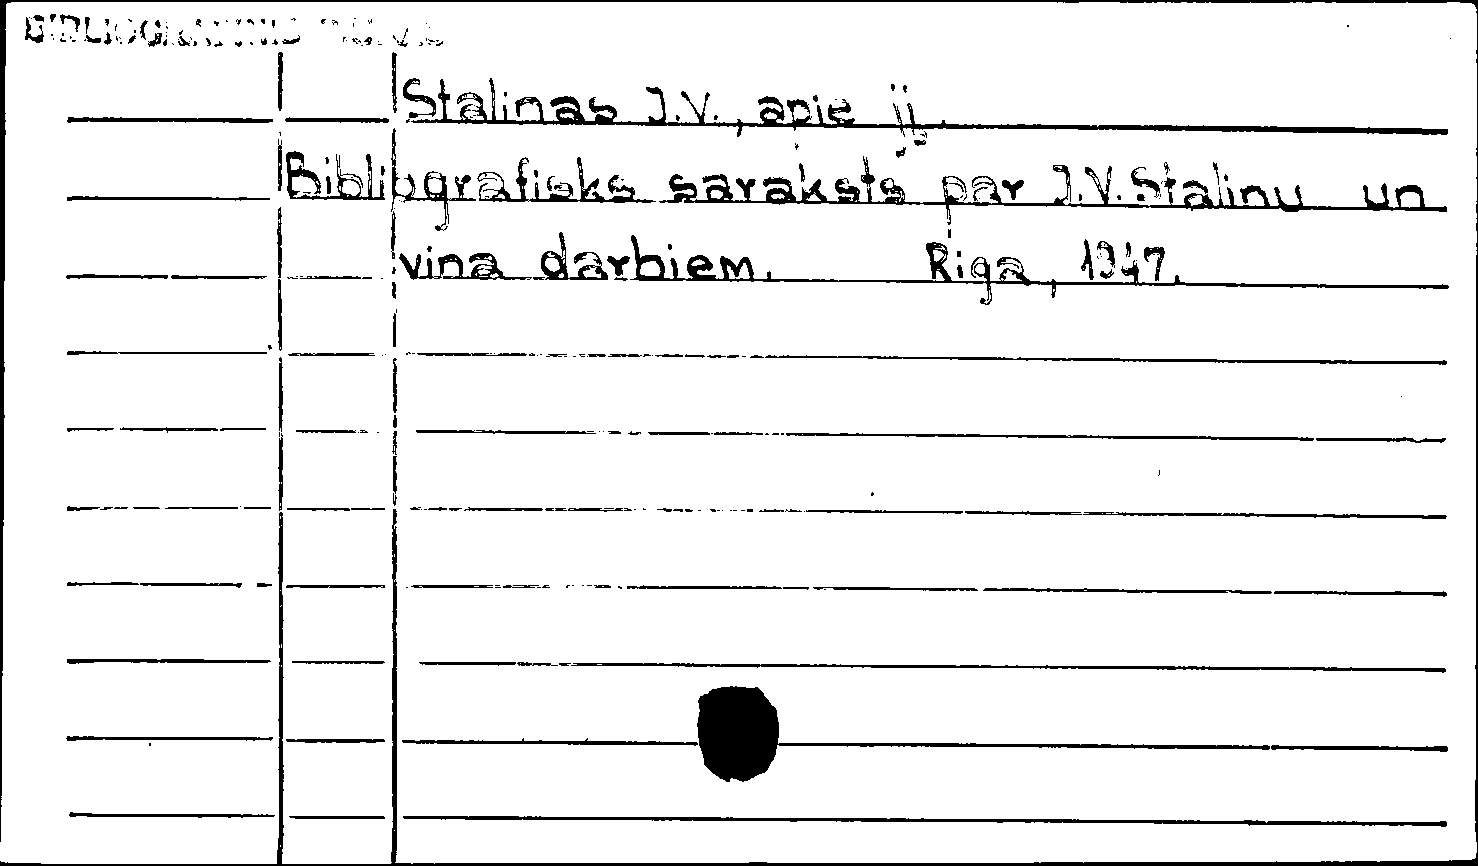 Stalinas J.V., apie jį.
Bibliografisks saraksts par J.V. Staļinu un
vina darbiem. Riga, 1947.